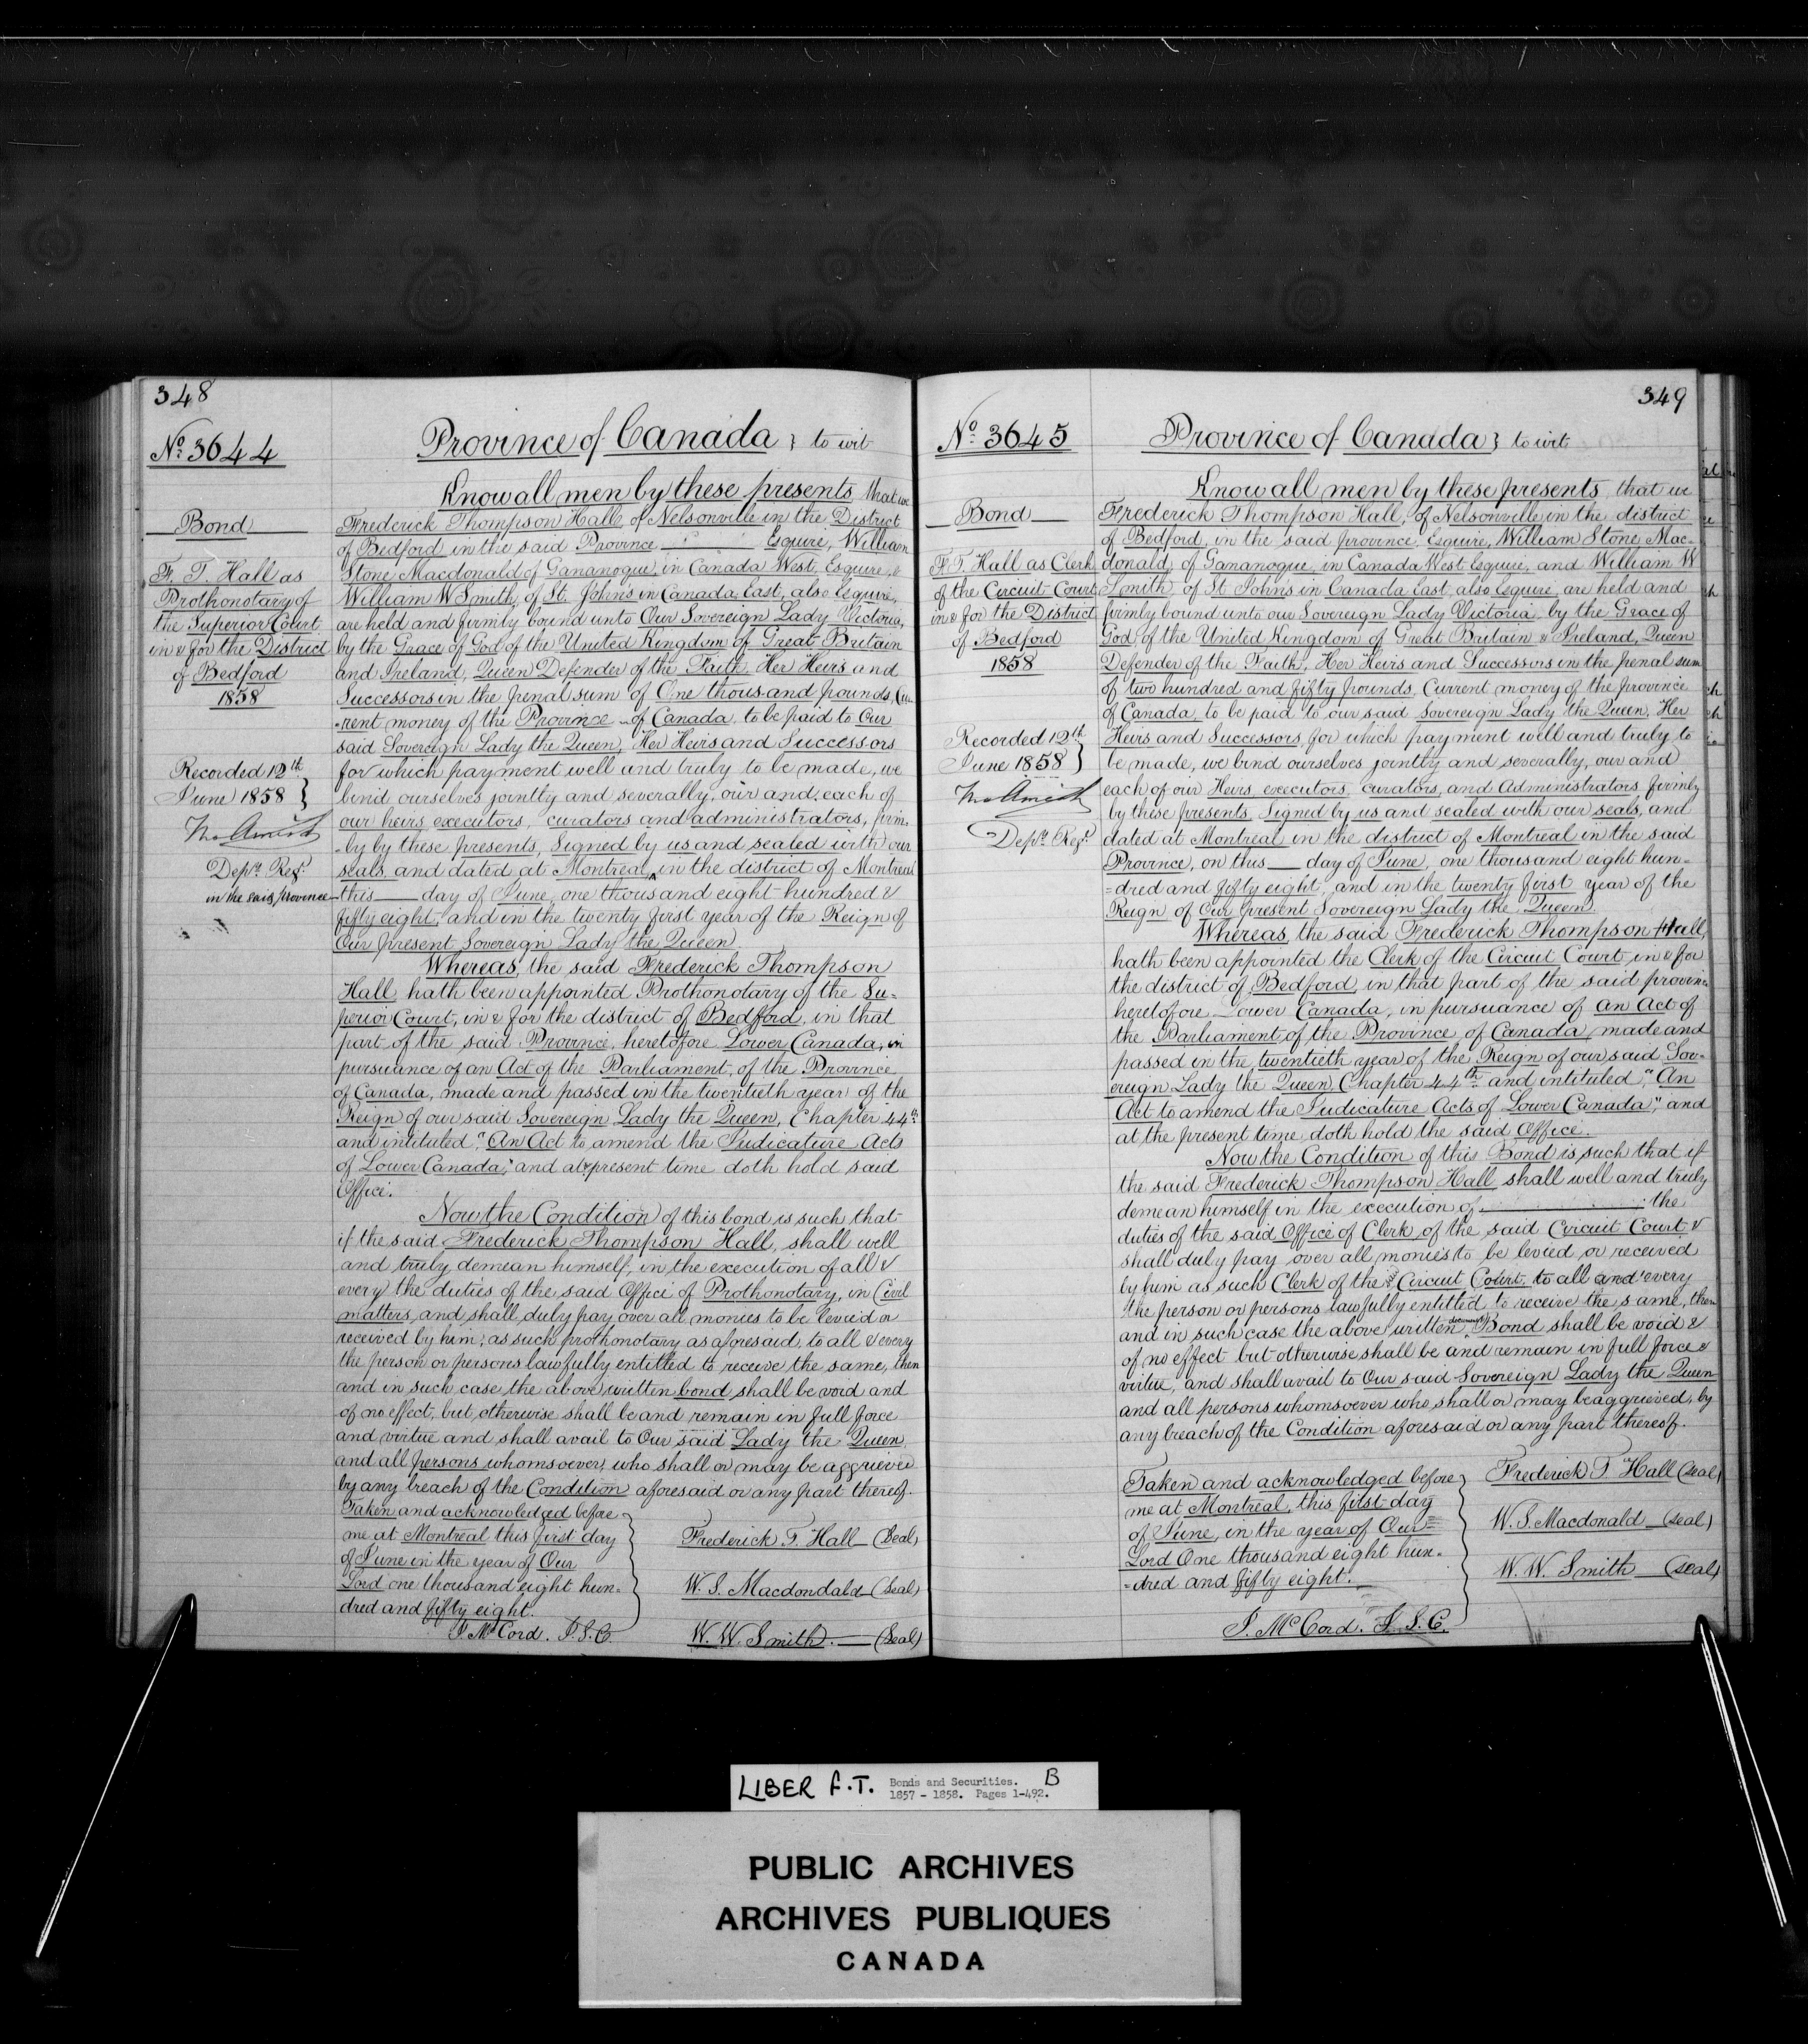 348
No. 3644
Bond
F. T. Hall as
Prothonotary of
the Superior Court
in & for the District
of Bedford
1858
Recorded 12th
June 1858 }
Depy. Regr.
in the said Province
Province of Canada } to wit
Know all men by these presents that we
Frederick Thompson Hall, of Nelsonville in the District
of Bedford in the said Province Esquire, William
Stone Macdonald of Gananoque, in Canada West, Esquire, &
William W Smith, of St. John's in Canada East, also Esquire,
are held and firmly bound unto Our Sovereign Lady Victoria,
by the Grace of God of the United Kingdom of Great Britain
and Ireland, Queen Defender of the Faith, Her Heirs and
Successors in the penal sum of One thousand pounds, Cur-
-rent money of the Province of Canada, to be paid to Our
said Sovereign Lady the Queen, Her Heirs and Successors
for which payment well and truly to be made, we
bind ourselves jointly and severally, our and each of
our heirs, executors, curators and administrators, firm-
-ly by these presents, Signed by us and sealed with our
seals, and dated at Montreal, in the district of Montreal
this day of June, one thousand eight hundred &
fifty eight, and in the twenty first year of the Reign of
Our present Sovereign Lady the Queen.
Whereas, the said Frederick Thompson
Hall, hath been appointed Prothonotary of the Su-
perior Court, in & for the district of Bedford, in that
part of the said Province, heretofore Lower Canada, in
pursuance of an Act of the Parliament, of the Province
of Canada, made and passed in the twentieth year of the
Reign of our said Sovereign Lady the Queen, Chapter 44th
and intituled "An Act to amend the Judicature Acts
of Lower Canada," and at present time doth hold said
Office.
Now the Condition of this bond is such that
if the said Frederick Thompson Hall, shall well
and truly demean himself, in the execution of all &
every the duties of the said Office of Prothonotary, in Civil
matters, and shall duly pay over all monies to be levied or
received by him, as such prothonotary as aforesaid, to all & every
the person or persons lawfully entitled to receive the same, then
and in such case the above written bond shall be void and
of no effect, but otherwise shall be and remain in full force
and virtue and shall avail to Our said Lady the Queen,
and all persons whomsoever, who shall or may be aggrieved
by any breach of the Condition aforesaid or any part thereof.
Taken and acknowledged before
me at Montreal this first day
of June in the year of Our
Lord one thousand eight hun-
dred and fifty eight.
J. McCord. J.S.C.
Frederick T. Hall (Seal)
W. S. Macdondald (Seal)
W. W. Smith. (Seal)
349
No. 3645
Bond
F. T. Hall as Clerk
of the Circuit Court
in & for the District
of Bedford
1858
Recorded 12th
June 1858 }
Depy. Regr.
Province of Canada } to wit
Know all men by these presents that we
Frederick Thompson Hall, of Nelsonville in the district
of Bedford, in the said province, Esquire, William Stone Mac-
donald, of Gananoque, in Canada West Esquire, and William W
Smith, of St John's in Canada East, also Esquire, are held and
firmly bound unto our Sovereign Lady Victoria, by the Grace of
God, of the United Kingdom of Great Britain & Ireland, Queen
Defender of the Faith, Her Heirs and Successors in the penal sum
of two hundred and fifty pounds, Current money of the province
of Canada, to be paid to our said Sovereign Lady the Queen, Her
Heirs and Successors, for which payment well and truly to
be made, we bind ourselves jointly and severally, our and
each of our Heirs, executors, curators, and Administrators, firmly
by these presents, Signed by us and sealed with our seals, and
dated at Montreal in the district of Montreal in the said
Province, on this day of June, one thousand eight hun-
-dred and fifty eight, and in the twenty first year of the
Reign of Our present Sovereign Lady the Queen.
Whereas, the said Frederick Thompson Hall,
hath been appointed the Clerk of the Circuit Court in & for
the district of Bedford, in that part of the said province
heretofore Lower Canada, in pursuance of an Act of
the Parliament of the Province of Canada, made and
passed in the twentieth year of the Reign of our said Sov-
ereign Lady the Queen, Chapter 44th and intituled, "An
Act to amend the Judicature Acts of Lower Canada," and
at the present time doth hold the said Office.
Now the Condition of this Bond is such that if
the said Frederick Thompson Hall shall well and truly
demean himself in the execution of the
duties of the said Office of Clerk of the said Circuit Court &
shall duly pay over all monies to be levied or received
by him as such Clerk of the said Circuit Court, to all and every
the person or persons lawfully entitled to receive the same, then
and in such case the above written Bond shall be void &
of no effect but otherwise shall be and remain in full force &
virtue, and shall avail to Our said Sovereign Lady the Queen
and all persons whomsoever who shall or may be aggrieved, by
any breach of the Condition aforesaid or any part thereof.
Taken and acknowledged before
me at Montreal, this first day
of June, in the year of Our
Lord One thousand eight hun-
-dred and fifty eight.
J. McCord. J. S. C.
Frederick T. Hall (Seal)
W. S. Macdonald (Seal)
W. W. Smith (Seal)
LIBER F.T. Bonds and Securities. B
1857 - 1858. Pages 1-492.
PUBLIC ARCHIVES
ARCHIVES PUBLIQUES
CANADA